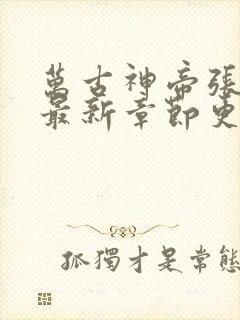 萬古神帝張
最新章節更
孤獨才是常態